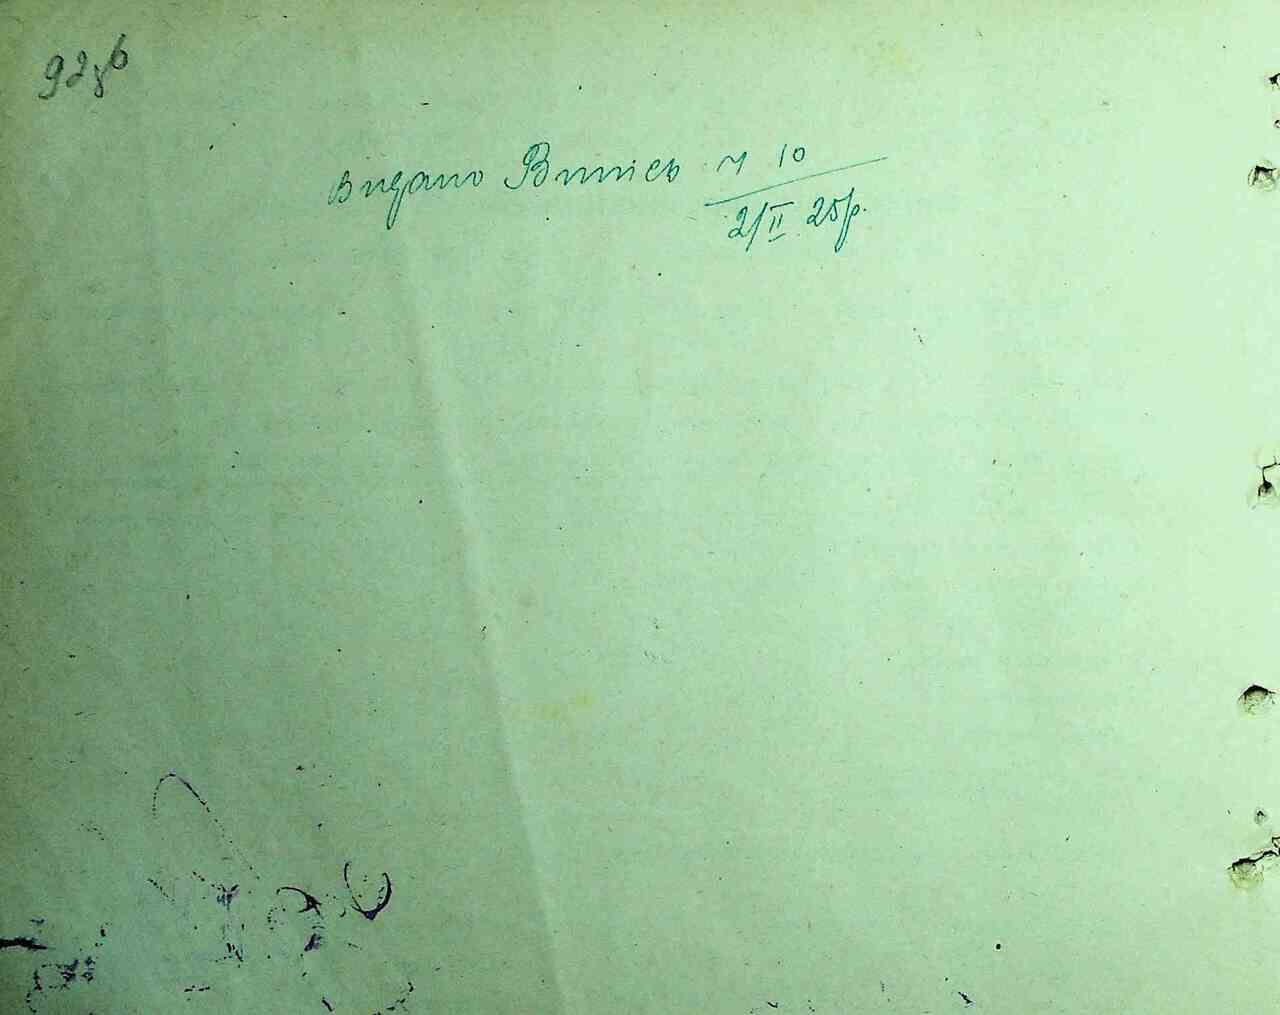 92зв
Видано Випись ч 10
2/II 25р.